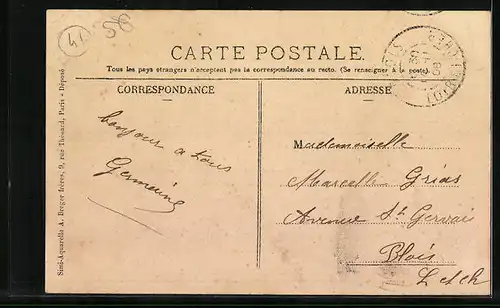 41 56
CARTE POSTALE
Tous les pays étrangers n'acceptent pas la correspondance au recto. (Se renseigner à la poste).
CORRESPONDANCE
ADRESSE
bonjour a tous
Germaine
Mademoiselle
Marcelle Grias
Avenue St Gervais
Blois
L et ch
Simi-Aquarelle A. Breger frères, 9, rue Thénard, Paris - Déposé